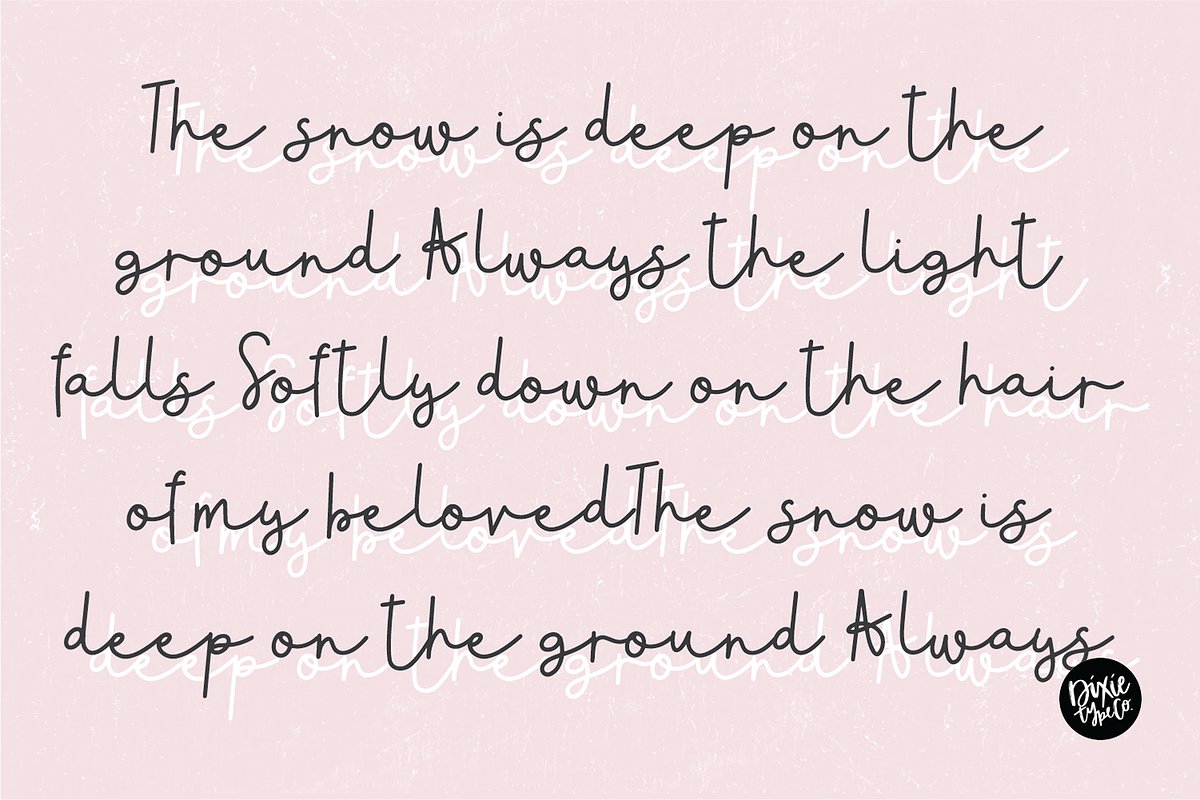 The snow is deep on the
ground Always the light
falls Softly down on the hair
of my belovedThe snow is
deep on the ground Always
Dixie
typeCo.